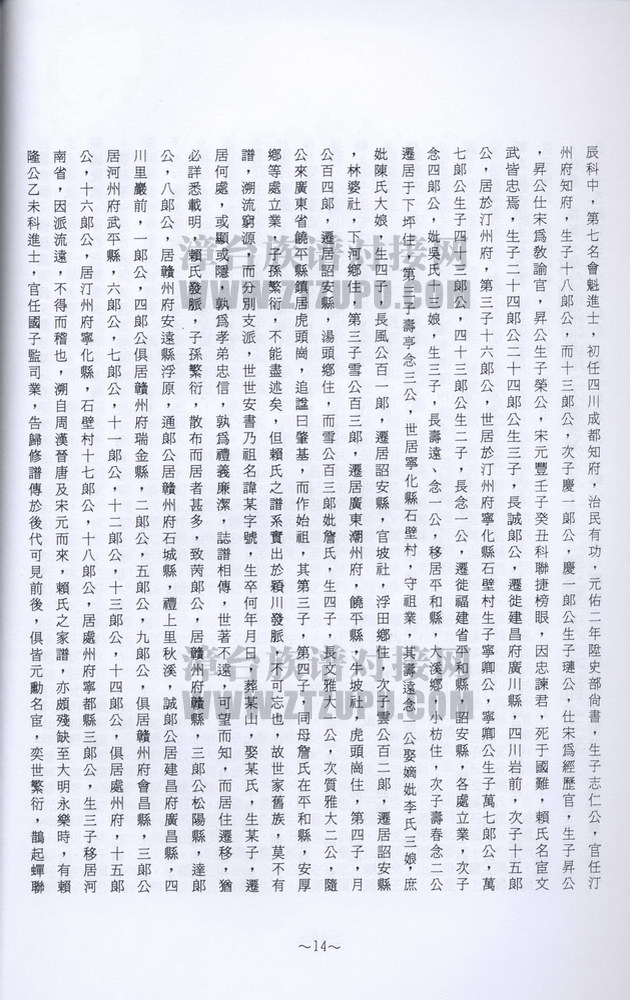 辰科中，第七名會魁進士，初任四川成都知府，治民有功，元佑二年陞史部尙書，生子志仁公，官任汀
州府知府，生子十八郞公，而十三郞公，次子慶一郞公，慶一郞公生子璉公，仕宋爲經歷官，生子昇公
，昇公仕宋爲敎諭官，昇公生子榮公，宋元豐壬子癸丑科聯捷榜眼，因忠諫君，死于國難，賴氏名宦文
武皆忠焉，生子二十四郞公二十四郞公生三子，長誠郞公，遷徙建昌府廣川縣，四川岩前，次子十五郞
公，居於汀州府，第三子十六郞公，世居於汀州府寧化縣石壁村生子寧卿公，寧卿公生子萬七郞公，萬
七郞公生子四十三郞公，四十三郞公生二子，長念一公，遷徙福建省平和縣，詔安縣，各處立業，次子
念四郞公，妣吳氏十四娘，生三子，長壽遠、念一公，移居平和縣，大溪鄉，小枋住，次子壽春念二公
遷居于下坪住，第三子壽亭念三公，世居寧化縣石壁村，守祖業，其壽遠念一公娶嫡妣李氏三娘，庶
妣陳氏大娘，生四子，長風公百一郞，遷居詔安縣，官坡社，浮田鄉住，次子雲公百二郞，遷居詔安縣
，林婆社，下河鄉住，第三子雪公百三郞，遷居廣東潮州府，饒平縣，牛坡社，虎頭崗住，第四子，月
公百四郞，遷居詔安縣，湯頭鄉住，而雪公百三郞妣詹氏，生四子，長文雅大一公，次質雅大二公，隨
公來廣東省饒平縣鎮居虎頭崗，追諡曰肇基，而作始祖，其第三子，第四子，同母詹氏在平和縣，安厚
鄉等處立業，子孫繁衍，不能盡述矣，但賴氏之譜系實出於穎川發脈，不可忘也，故世家舊族，莫不有
譜，溯流窮源，而分別支派，世世安書乃祖名諱某字號，生卒何年月日，葬某山，娶某氏，生某子，遷
居何處，或顯或隱，孰爲孝弟忠信，孰爲禮義廉潔，誌譜相傳，世著不遠，可望而知，而居住遷移，猶
必詳悉載明，賴氏發脈，子孫繁衍，散布而居者甚多，致芮郞公，居贛州府贛縣，三郞公松陽縣，達郞
公，八郞公，居贛州府安遠縣浮原，通郞公居贛州府石城縣，禮上里秋溪，誠郞公居建昌府廣昌縣，四
川里巖前，一郞公，四郞公俱居贛州府瑞金縣，二郞公，五郞公，九郞公，俱居贛州府會昌縣，三郞公
居河州府武平縣，六郞公，七郞公，十一郞公，十二郞公，十三郞公，十四郞公，俱居處州府，十五郞
公，十六郞公，居汀州府寧化縣，石壁村十七郞公，十八郞公，居處州府寧都縣三郞公，生三子移居河
南省，因派流遠，不得而稽也，溯自周漢晉唐及宋元而來，賴氏之家譜，亦頗殘缺至大明永樂時，有賴
隆公乙未科進士，官任國子監司業，告歸修譜傳於後代可見前後，俱皆元勳名宦，奕世繁衍，鵲起蟬聯
～14～
漳台族谱对接网
WWW.ZTZUPU.COM
漳台族谱对接网
WWW.ZTZUPU.COM